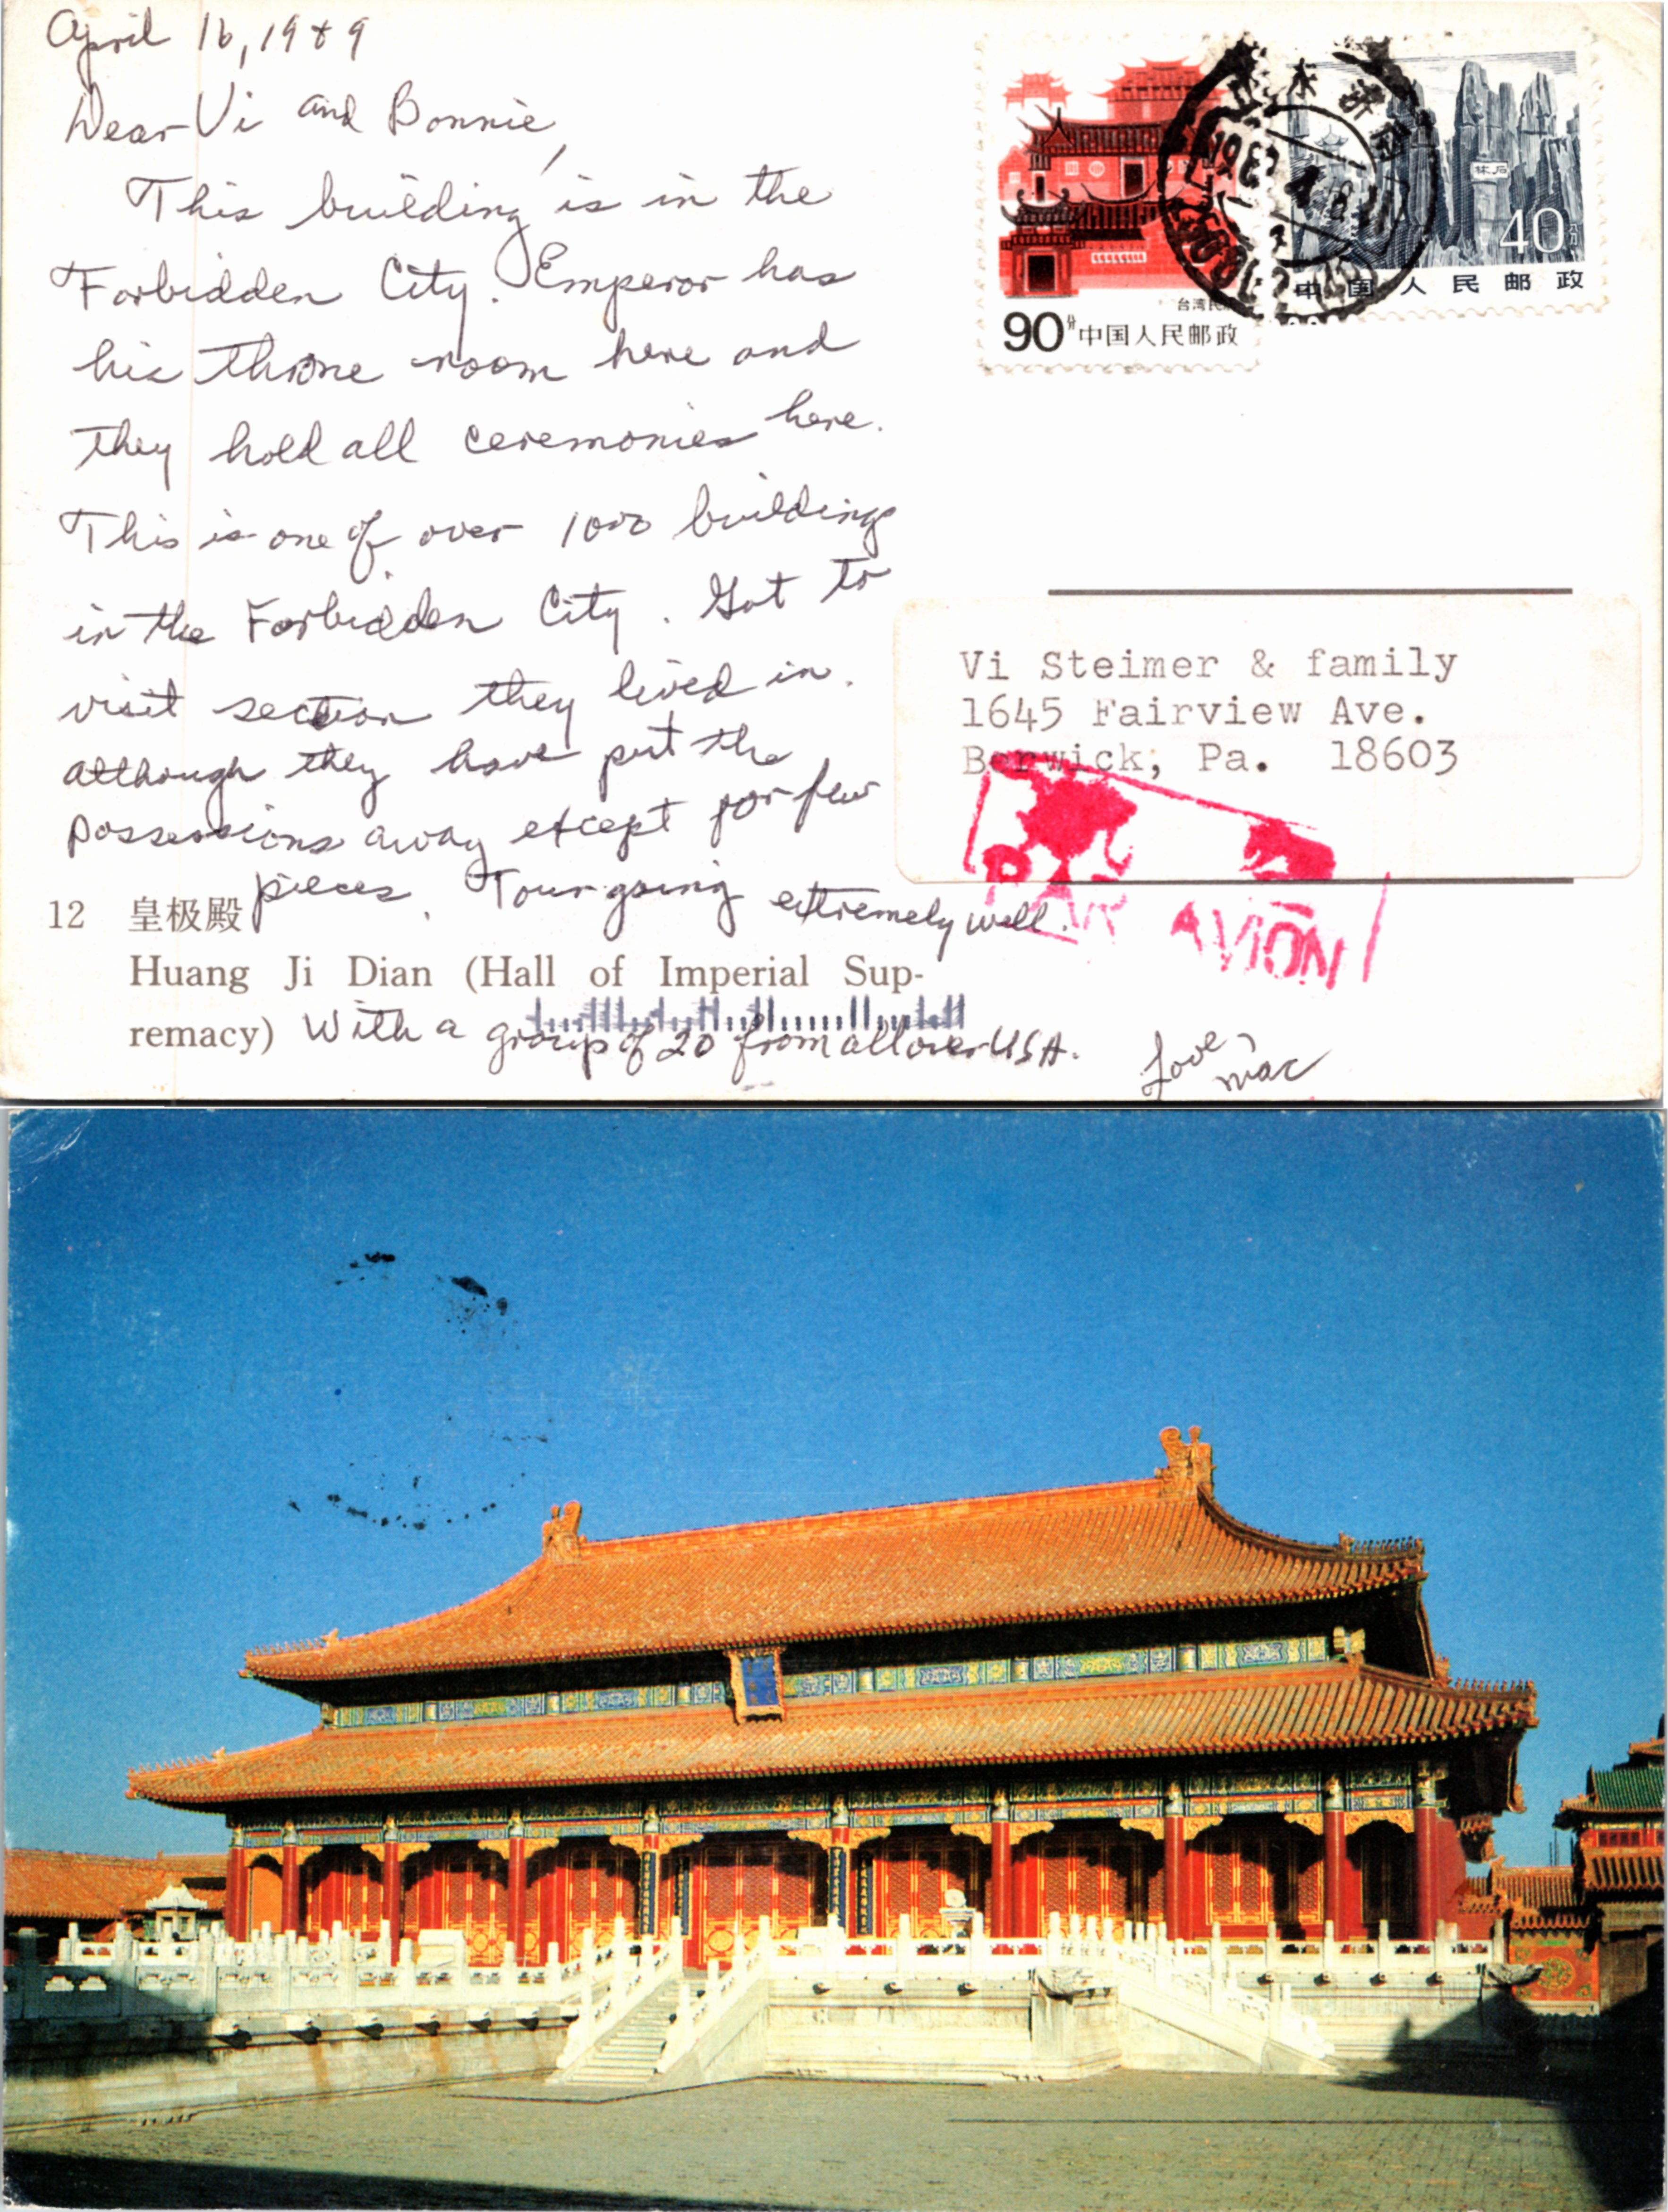 April 16, 1989
Dear Vi and Bonnie,
This building is in the
Forbidden City. Emperor has
his throne room here and
they hold all ceremonies here.
This is one of over 1000 buildings
in the Forbidden City. Got to
visit section they lived in.
although they have put the
possessions away except for few
pieces. Tour going extremely well.
12 皇极殿
Huang Ji Dian (Hall of Imperial Sup-
remacy)
With a group of 20 from all over USA.
Love,
Mac
90分中国人民邮政
石林
40分
中国人民邮政
Vi Steimer & family
1645 Fairview Ave.
Berwick, Pa. 18603
PAR AVION